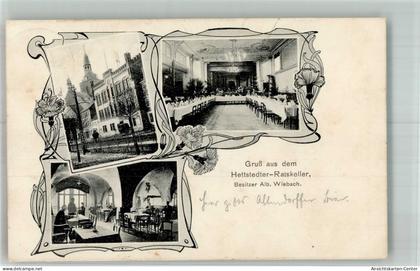 Gruß aus dem
Hettstedter-Ratskeller,
Besitzer Alb. Wiebach.
hier gibts Allendorffer Bier.
Ansichtskarten-Center